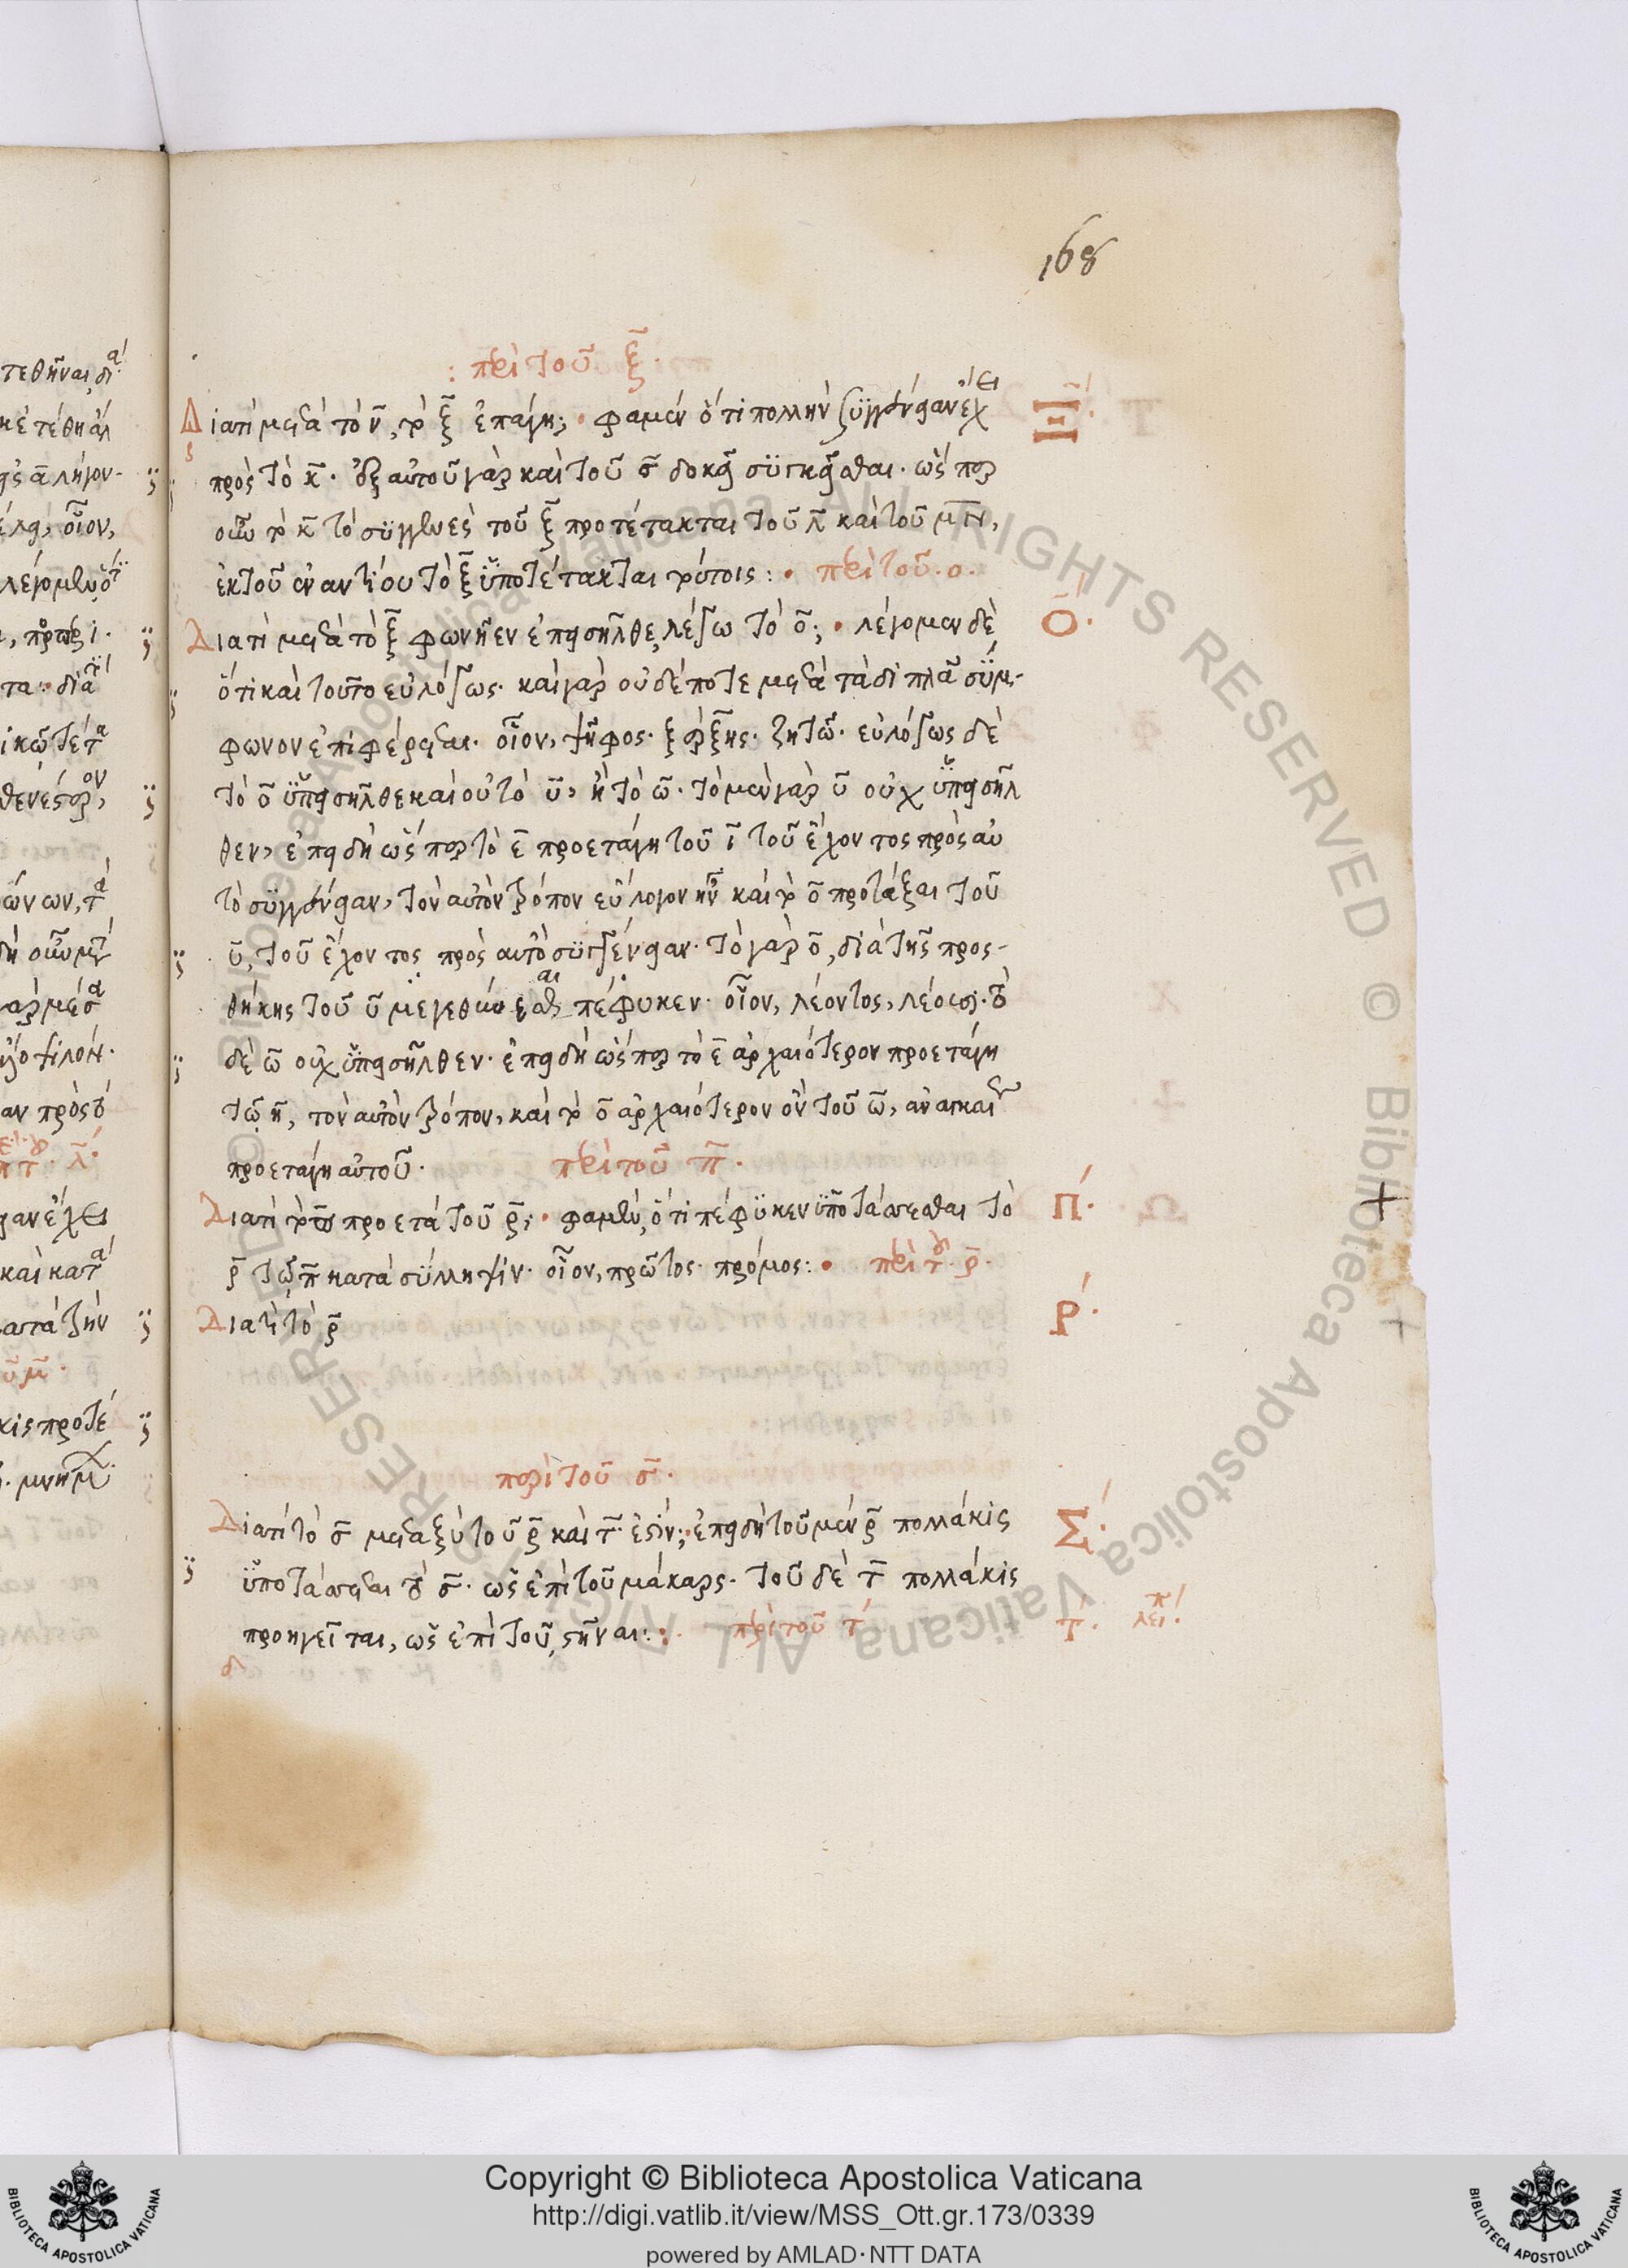 168
: περὶ τοῦ ξ̄.
Διατί μετὰ τὸ ν̄, τὸ ξ̄ ἐπάγη; · φαμὲν ὅτι πολλὴν συγγένειαν ἔχει Ξ.
πρὸς τὸ κ̄. ἐξ αὐτοῦ γὰρ καὶ τοῦ σ̄ δοκεῖ συγκεῖσθαι. ὥσπερ
οὖν τὸ κ̄ τὸ συγγενὲς τοῦ ξ̄ προτέτακται τοῦ λ̄ καὶ τοῦ μ̄ν̄,
ἐκ τοῦ ἐναντίου τὸ ξ̄ ὑποτέτακται τούτοις: · περὶ τοῦ. ο.
Διατί μετὰ τὸ ξ̄ φωνῆεν ἐπεισῆλθε, λέγω τὸ ο̄; · λέγομεν δὲ Ο.
ὅτι καὶ τοῦτο εὐλόγως. καὶ γὰρ οὐδέποτε μετὰ τὰ διπλᾶ σύμ-
φωνον ἐπιφέρεται. οἷον, ψῆφος. ξέρξης. ζητῶ. εὐλόγως δὲ
τὸ ο̄ ὑπεισῆλθε καὶ οὐ τὸ ῡ, ἢ τὸ ω̄. τὸ μὲν γὰρ ῡ οὐχ ὑπεισῆλ
θεν, ἐπειδὴ ὥσπερ τὸ ε̄ προετάγη τοῦ ῑ τοῦ ἔχοντος πρὸς αὐ
τὸ συγγένειαν, τὸν αὐτὸν τρόπον εὔλογον ἦν καὶ τὸ ο̄ προτάξαι τοῦ
ῡ, τοῦ ἔχοντος πρὸς αὐτὸ συγγένειαν. τὸ γὰρ ο̄, διὰ τῆς προσ-
θήκης τοῦ ῡ μεγεθύνεσθαι πέφυκεν. οἷον, λέοντος, λέουσι. τὸ
δὲ ω̄ οὐχ ὑπεισῆλθεν. ἐπειδὴ ὥσπερ τὸ ε̄ ἀρχαιότερον προετάγη
τῷ η̄, τὸν αὐτὸν τρόπον, καὶ τὸ ο̄ ἀρχαιότερον ὂν τοῦ ω̄, ἀναγκαίως
προετάγη αὐτοῦ. περὶ τοῦ π̄.
Διατί τὸ π̄ προετά τοῦ ρ̄; · φαμὲν, ὅτι πέφυκεν ὑποτάσσεσθαι τὸ Π.
ρ̄ τῷ π̄ κατὰ σύλληψιν. οἷον, πρῶτος. πρόμος: · περὶ τοῦ. ρ̄.
Διατί τὸ ρ̄ Ρ.
περὶ τοῦ σ̄.
Διατί τὸ σ̄ μεταξὺ τοῦ ρ̄ καὶ τ̄ ἐστίν; · ἐπειδὴ τοῦ μὲν ρ̄ πολλάκις Σ.
ὑποτάσσεται τὸ σ̄. ὡς ἐπὶ τοῦ μάκαρς. τοῦ δὲ τ̄ πολλάκις
προηγεῖται, ὡς ἐπὶ τοῦ, στῆναι: · περὶ τοῦ τ̄ Τ. λει π
Copyright © Biblioteca Apostolica Vaticana
http://digi.vatlib.it/view/MSS_Ott.gr.173/0339
powered by AMLAD·NTT DATA
BIBLIOTECA APOSTOLICA VATICANA
BIBLIOTECA APOSTOLICA VATICANA